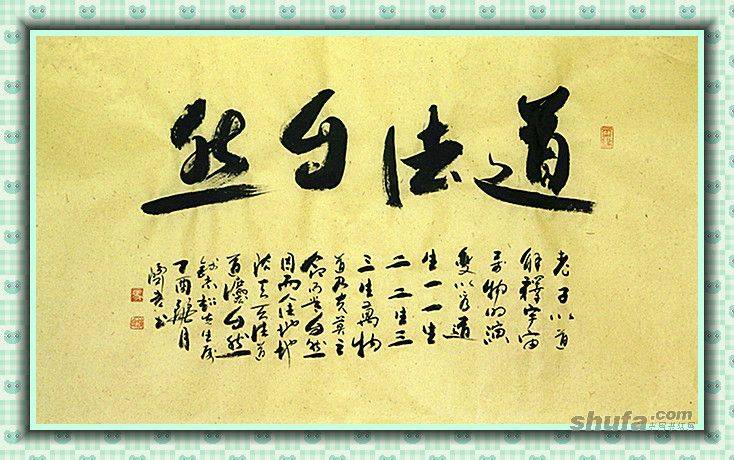 道法自然
老子以道
解釋宇宙
萬物的演
變以為道
生一一生
二二生三
三生萬物
道乃夫莫之
命而常自然
因而人法地地
法天天法道
道灋自然
先生
丁酉 月
书
shufa.com